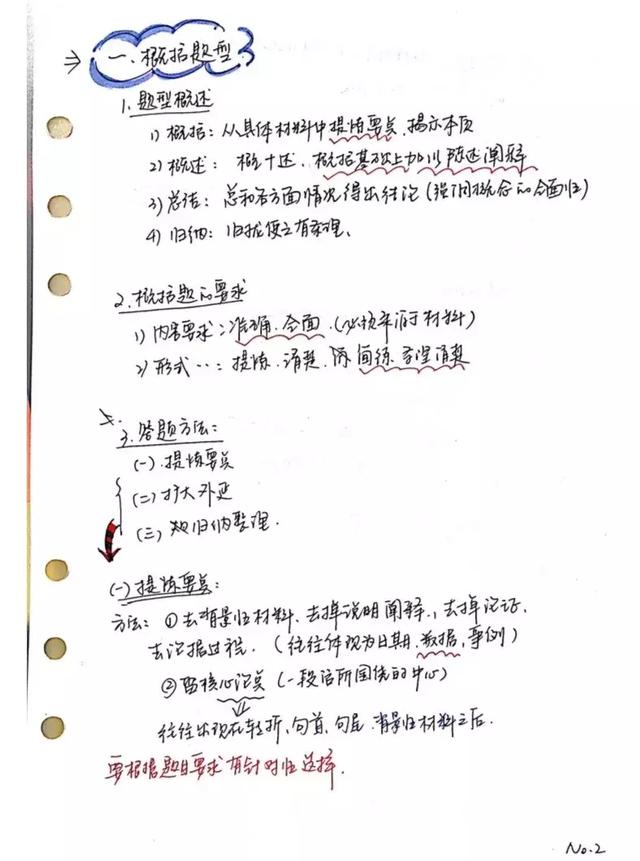 ⇒ 一、概括题型
1. 题型概述
1) 概括：从具体材料中提炼要点、揭示本质
2) 概述：概+述、概括基础上加以陈述阐释
3) 总结：总和各方面情况得出结论（强调概念的全面性）
4) 归纳：归拢使之有条理、
2. 概括题的要求
1) 内容要求：准确、全面、（必须来源于材料）
2) 形式…：提炼、清楚、简练、条理清楚
3. 答题方法：
(一) 提炼要点
(二) 扩大外延
(三) 归纳整理.
(一) 提炼要点：
方法：①去背景性材料、去掉说明阐释、去掉论证、
去论据过程、（往往体现为日期、数据、事例）
②留核心论点（一段话所围绕的中心）
往往出现在转折、句首、句尾、背景性材料之后.
要根据题目要求有针对性选择.
No.2